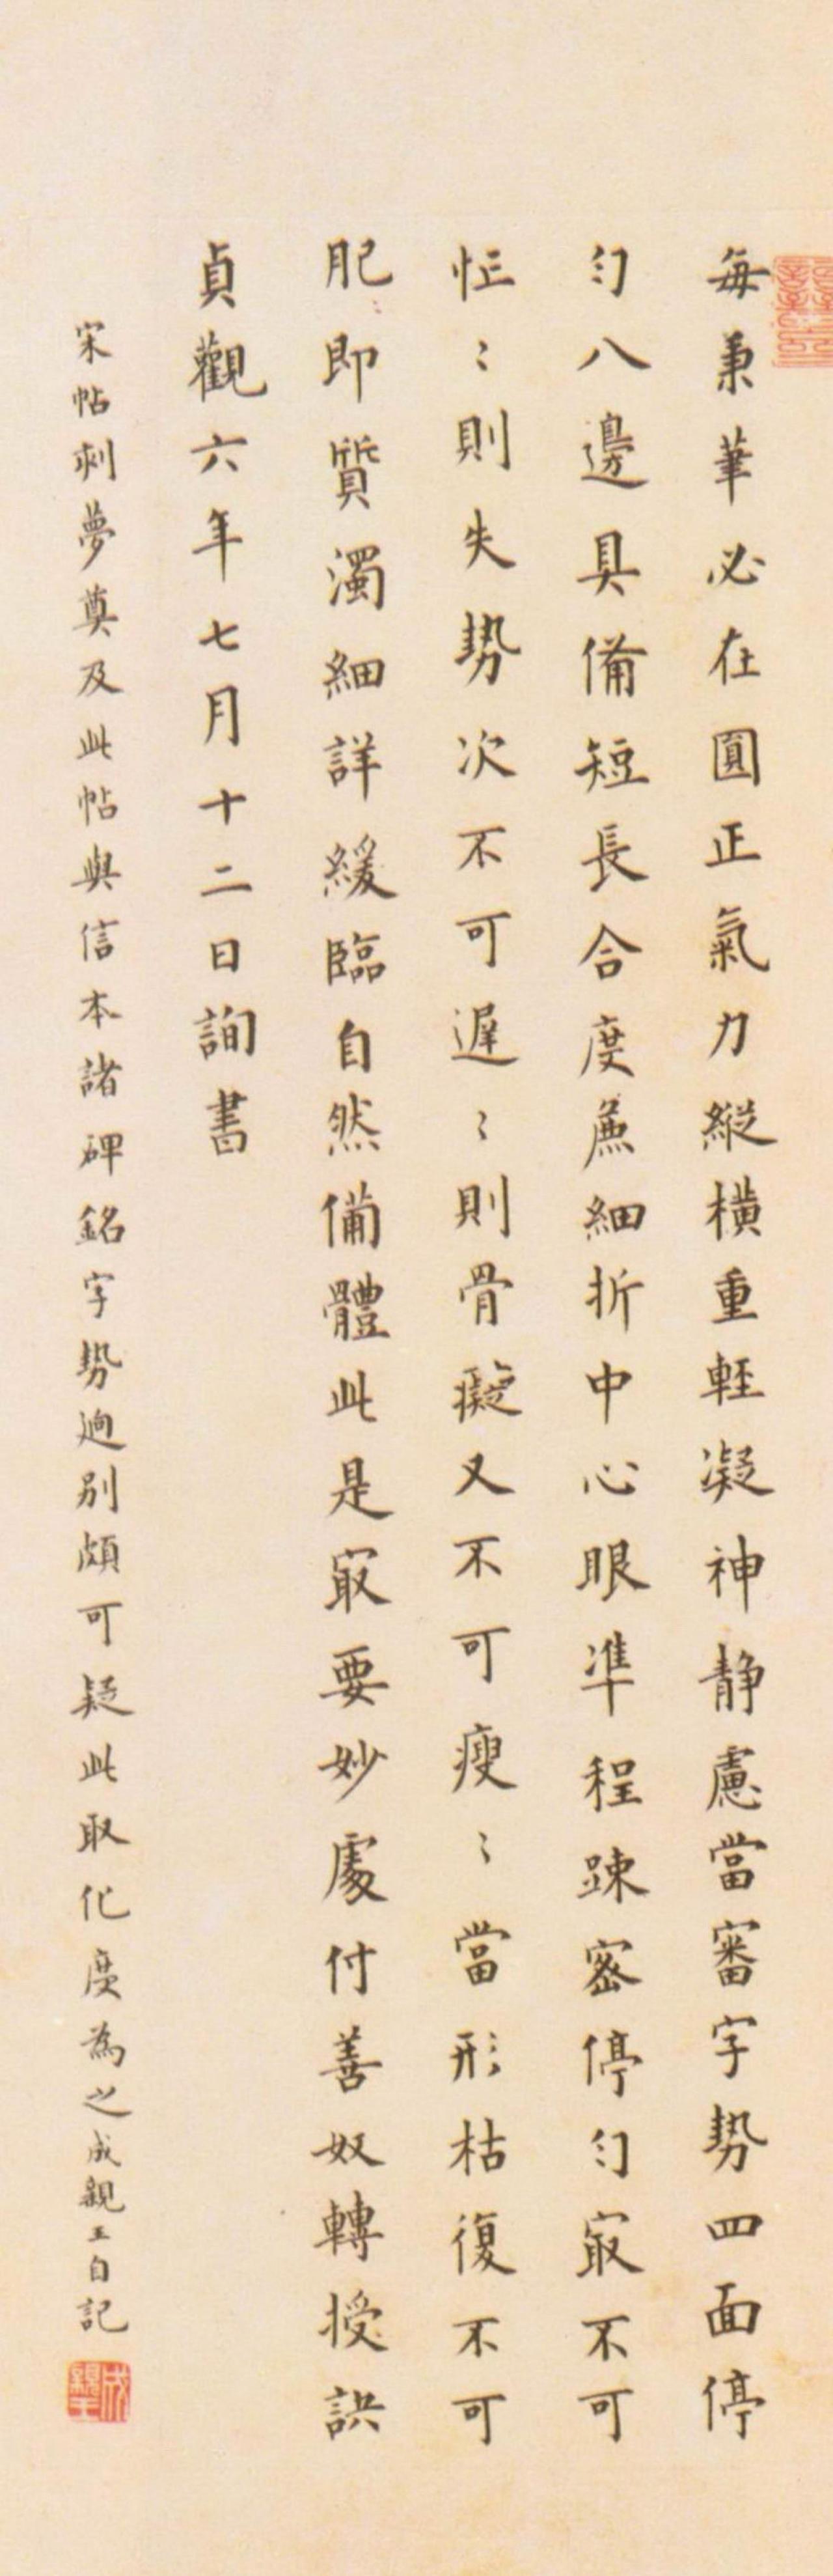 每秉筆必在圓正氣力縱横重輕凝神静慮當審字勢四面停
匀八邊具備短長合度麁細折中心眼準程踈密停匀㝡不可
忙〻則失勢次不可遲〻則骨癡又不可瘦〻當形枯復不可
肥即質濁細詳緩臨自然備體此是㝡要妙處付善奴轉授訣
貞觀六年七月十二日詢書
宋帖刺夢奠及此帖與信本諸碑銘字勢迥别頗可疑此取化度為之成親王自記
成親王